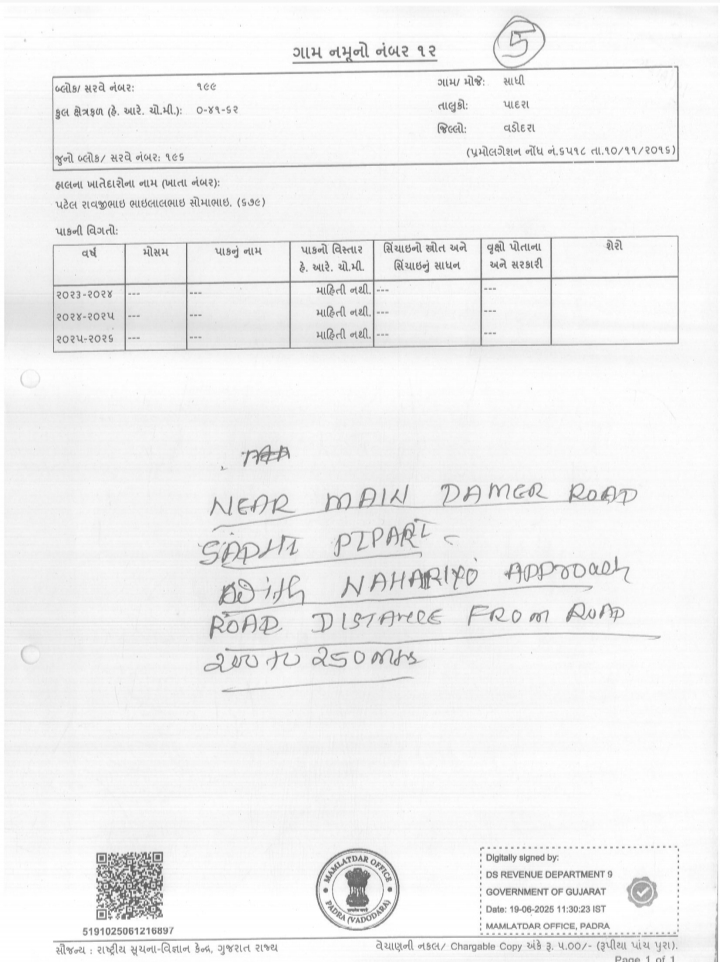 ગામ નમૂનો નંબર ૧૨
5
બ્લોક/ સરવે નંબર: ૧૯૯
ગામ/ મોજે: સાધી
કુલ ક્ષેત્રફળ (હે. આરે. ચો.મી.): ૦-૪૧-૬૨
તાલુકો: પાદરા
જિલ્લો: વડોદરા
જુનો બ્લોક/ સરવે નંબર: ૧૯૬
(પ્રમોલગેશન નોંધ નં.૬૫૧૮ તા.૧૦/૧૧/૨૦૧૬)
હાલના ખાતેદારોના નામ (ખાતા નંબર):
પટેલ રાવજીભાઇ ભાઇલાલભાઇ સોમાભાઇ. (૬૭૯)
પાકની વિગતો:
વર્ષ મોસમ પાકનું નામ પાકનો વિસ્તાર સિંચાઇનો સ્ત્રોત અને વૃક્ષો પોતાના શેરો
હે. આરે. ચો.મી. સિંચાઇનું સાધન અને સરકારી
૨૦૨૩-૨૦૨૪ --- --- માહિતી નથી. --- ---
૨૦૨૪-૨૦૨૫ --- --- માહિતી નથી. --- ---
૨૦૨૫-૨૦૨૬ --- --- માહિતી નથી. --- ---
NEAR MAIN DAMER ROAD
SADHI PIPARI -
With NAHARIYO APProach
ROAD DISTANCE FROM ROAD
200 to 250 mts
5191025061216897
MAMLATDAR OFFICE
PADRA (VADODARA)
Digitally signed by:
DS REVENUE DEPARTMENT 9
GOVERNMENT OF GUJARAT
Date: 19-06-2025 11:30:23 IST
MAMLATDAR OFFICE, PADRA
સૌજન્ય : રાષ્ટ્રીય સૂચના-વિજ્ઞાન કેન્દ્ર, ગુજરાત રાજ્ય
વેચાણની નકલ/ Chargable Copy અંકે રૂ. ૫.૦૦/- (રૂપીયા પાંચ પુરા).
Page 1 of 1